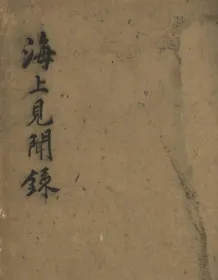 海上見聞錄